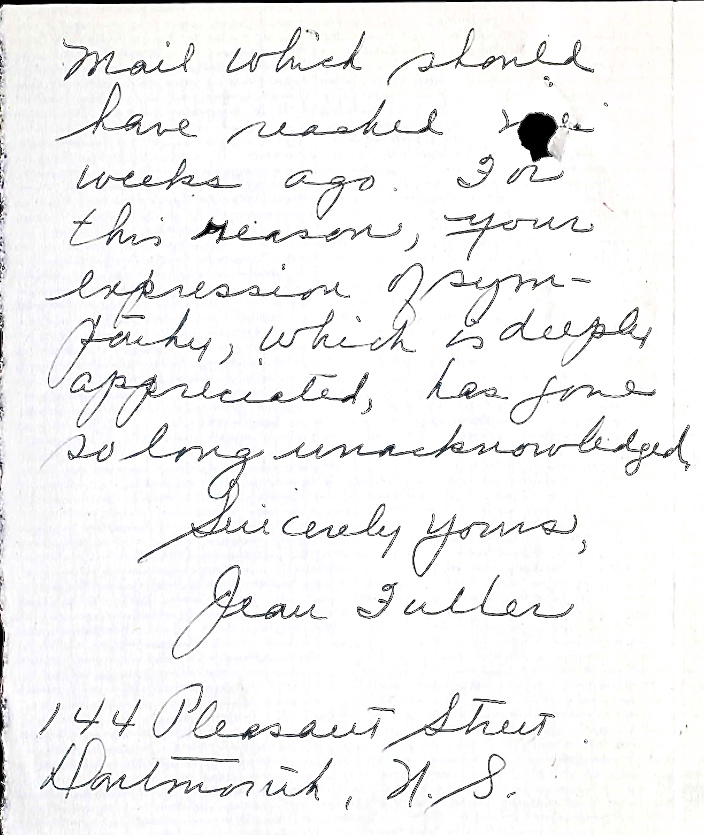 Mail which should
have reached
weeks ago. For
this reason, your
expression of sym-
pathy, which is deeply
appreciated, has gone
so long unacknowledged,
Sincerely yours,
Jean Fuller
144 Pleasant Street
Dartmouth, N. S.